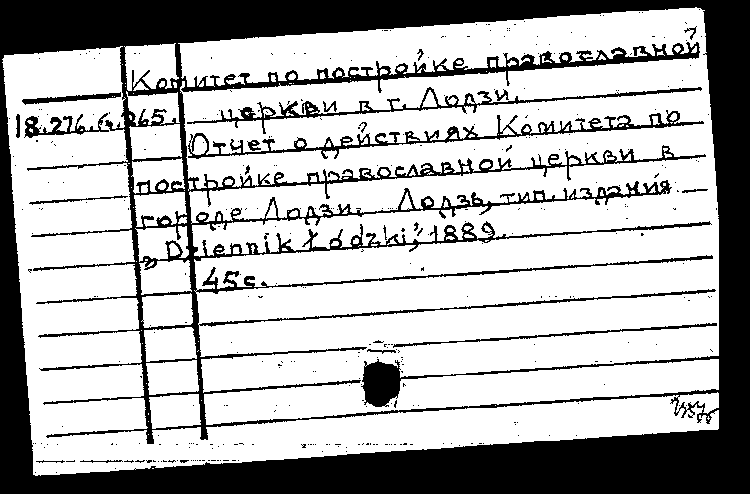 Комитет по постройке православной
18.276.6.265. церкви в г. Лодзи.
Отчет о действиях Комитета по
постройке православной церкви в
городе Лодзи. Лодзь, тип. издания
„Dziennik Łódzki”, 1889.
45с.